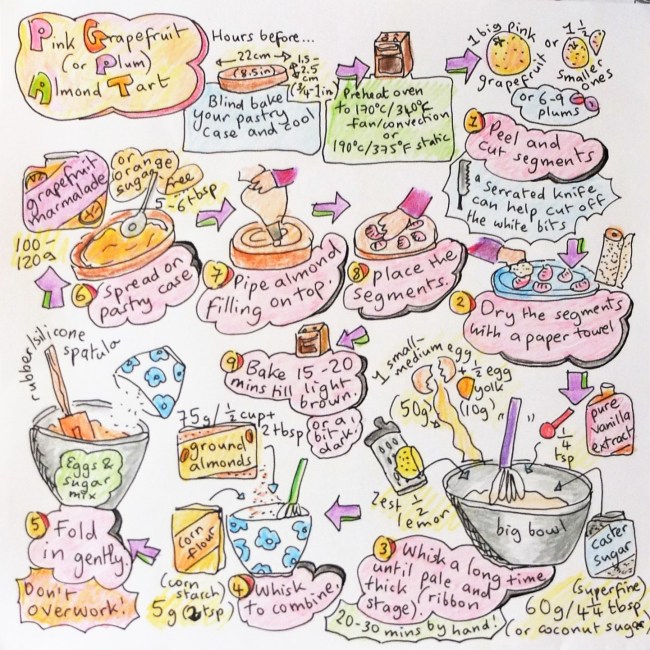 Pink Grapefruit
(or Plum)
Almond Tart
Hours before...
22cm
(8.5in)
1.5-
2.5
cm
(3/4-1in)
Blind bake
your pastry
case and cool
Preheat oven
to 170°C/340°F
fan/convection
or
190°C/375°F static
1 big pink
grapefruit
or
1 1/2
smaller
ones
or 6-9
plums
1 Peel and
cut segments
a serrated knife
can help cut off
the white bits
2 Dry the segments
with a paper towel
pure
vanilla
extract
1/4
tsp
1 small-
medium egg
(50g)
+ 1/2 egg
yolk
(10g)
Zest 1/2
lemon
big bowl
caster
sugar
(superfine)
60g/4 1/4 tbsp
(or coconut sugar)
3 Whisk a long time
until pale and
thick (ribbon
stage).
20-30 mins by hand!
75g/1/2 cup+
2 tbsp
ground
almonds
corn
flour
(corn
starch)
5g (2 tsp)
4 Whisk
to combine.
rubber/silicone
spatula
Eggs &
sugar
mix
5 Fold
in gently.
Don't
overwork!
grapefruit
marmalade
or
orange
sugar-
free
5-6 tbsp
100-
120g
6 Spread on
pastry case
7 Pipe almond
filling on top.
8 Place the
segments.
9 Bake 15-20
mins till light
brown.
(or a
bit
dark)